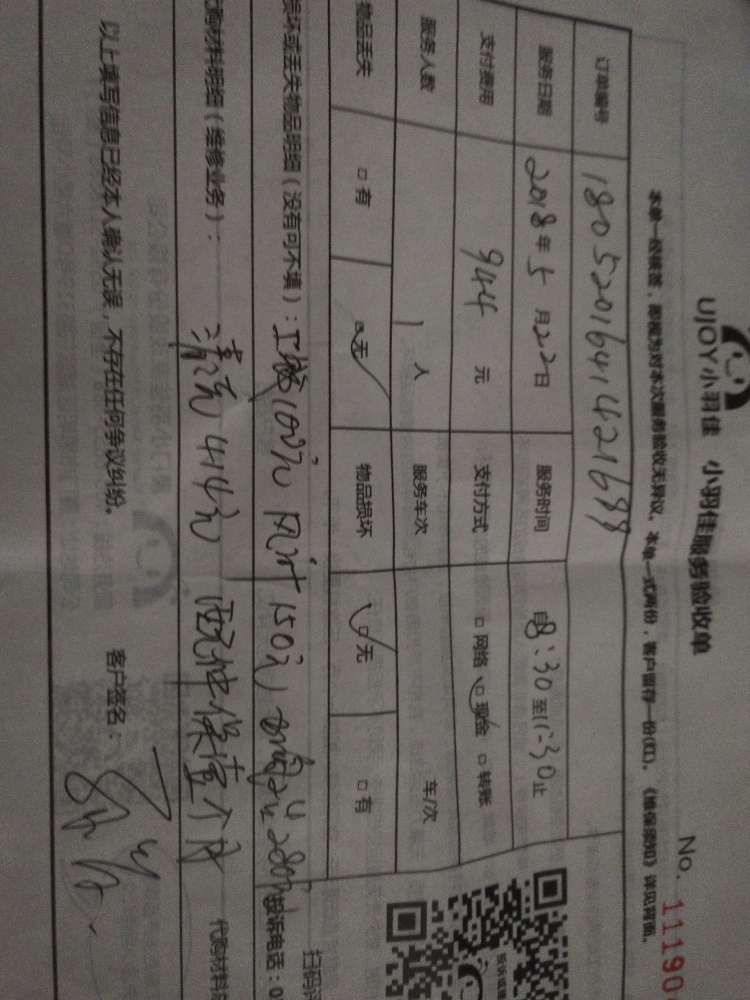 UJOY小羽佳 小羽佳服务验收单
No. 11190
本单一经填签，即视为对本次服务验收无异议。本单一式两份，客户留存一份(红)。《维保须知》详见背面。
订单编号 180520164142168
服务日期 2018年5月22日 服务时间 自8:30至11:30止
支付费用 944元 支付方式 □网络 ☑现金 □转账
服务人数 1人 服务车次 车/次
物品丢失 □有 ☑无 物品损坏 ☑无 □有
损坏或丢失物品明细（没有可不填）：工城100元 风叶150元 280元
投诉电话：0
购材料明细（维修业务）： 清洗414元 保壹个月
代购材料
以上填写信息已经本人确认无误，不存在任何争议纠纷。 客户签名：